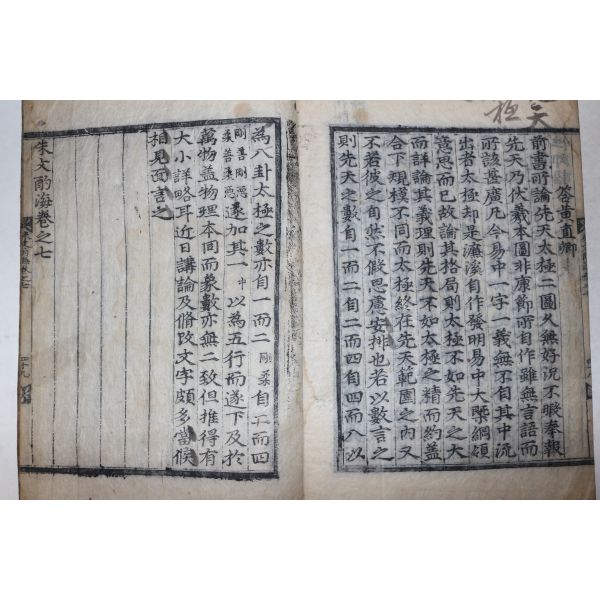 天極
答黃直卿
前書所論先天太極二圖久無好況不暇奉報
先天乃伏羲本圖非康節所自作雖無言語而
所該甚廣凡今易中一字一義無不自其中流
出者太極却是濂溪自作發明易中大槩綱領
意思而已故論其格局則太極不如先天之大
而詳論其義理則先天不如太極之精而約盖
合下規模不同而太極終在先天範圍之内又
不若彼之自然不假思慮安排也若以數言之
則先天之數自一而二自二而四自四而八以
爲八卦太極之數亦自一而二剛柔自二而四
剛善剛惡柔善柔惡遂加其一中以爲五行而遂下及於
萬物盖物理本同而象數亦無二致但推得有
大小詳略耳近日講論及脩改文字頗多當候
相見面言之
朱文酌海卷之七